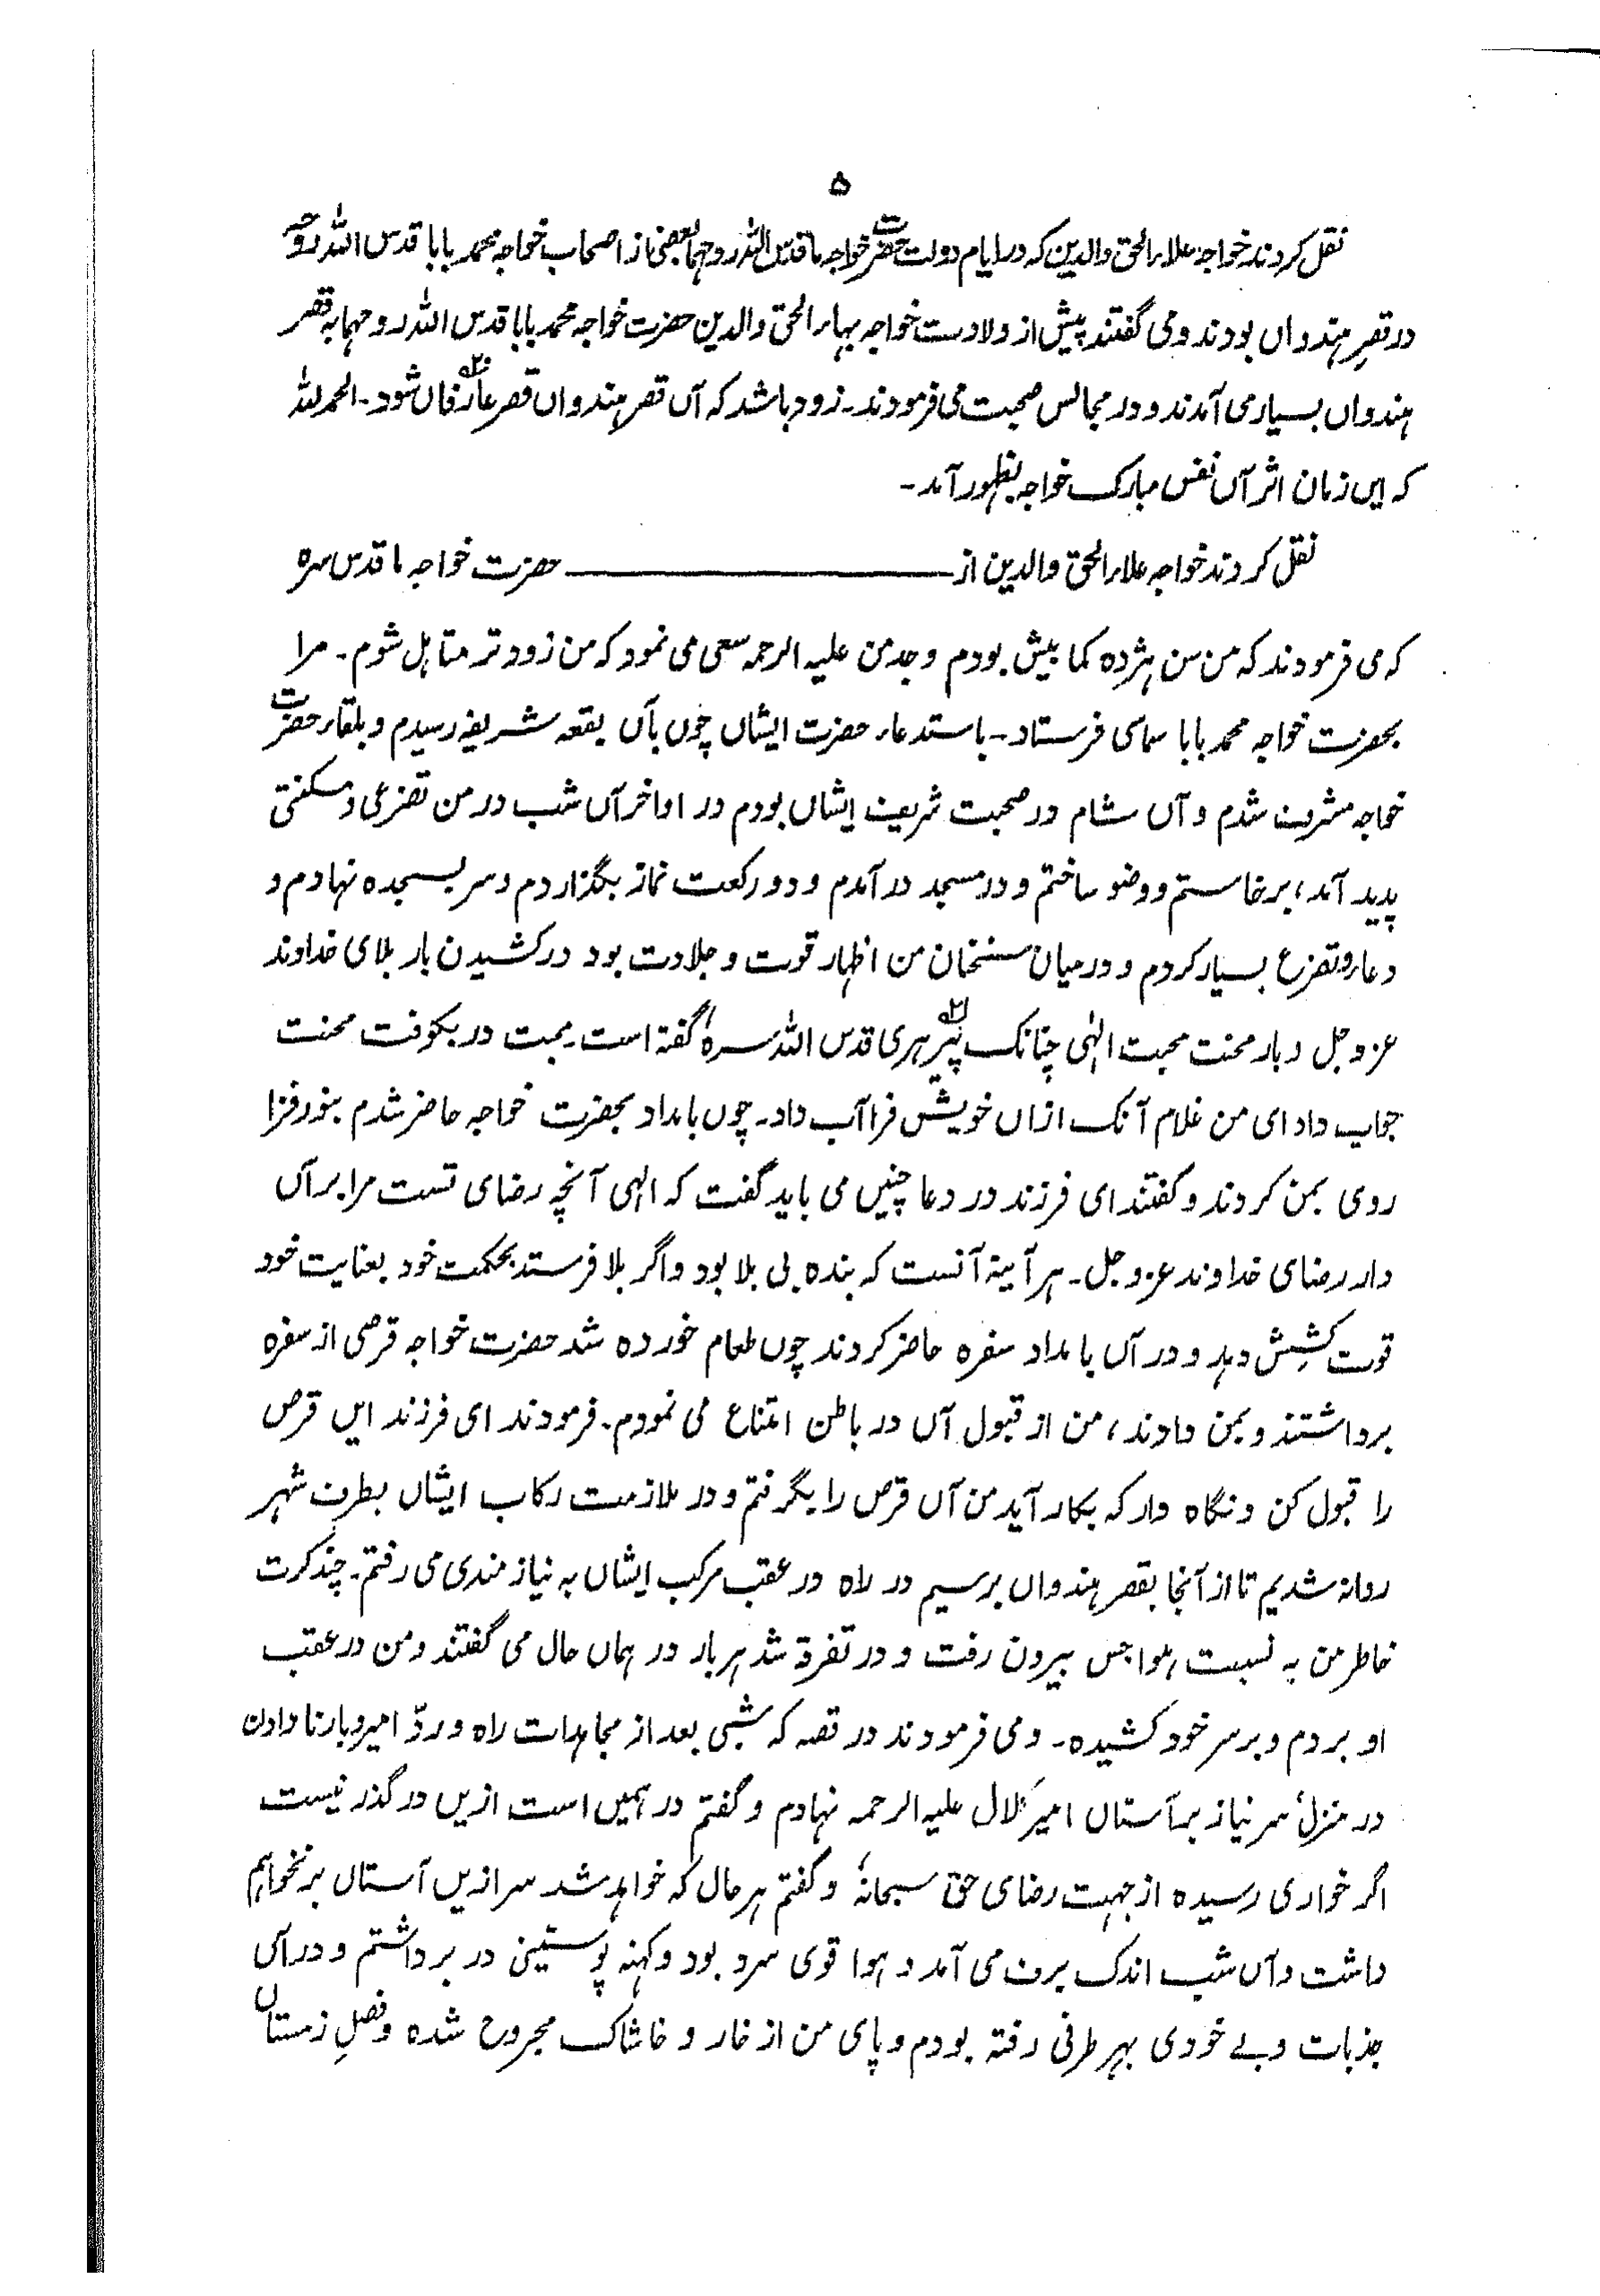 ۵
نقل کردند خواجه علاء الحق والدین که در ایام دولت حضرت خواجه ما قدس الله روحهما بعضی از اصحاب خواجه محمد بابا قدس الله روحه
در قصرِ هندواں بودند و می گفتند پیش از ولادت خواجه بهاء الحق والدین حضرت خواجه محمد بابا قدس الله روحهما به قصر
هندواں بسیار می آمدند و در مجالس صحبت می فرمودند۔ زود باشد که آں قصر هندواں قصر عارفاں شود۔ الحمد لله
که ایں زمان اثر آں نفس مبارک خواجه بظهور آمد۔
نقل کردند خواجه علاء الحق والدین از ـــــــــ حضرت خواجه ما قدس سره
که می فرمودند که من سن هژده کما بیش بودم و جد من علیه الرحمه سعی می نمود که من زود تر متاهل شوم۔ مرا
بحضرت خواجه محمد بابا سماسی فرستاد۔ باستدعاء حضرت ایشاں چوں بآں بقعه شریفه رسیدم و بلقاء حضرت
خواجه مشرف شدم و آں شام در صحبت شریف ایشاں بودم در اواخر آں شب در من تضرعی و مسکنتی
پدید آمد، برخاستم و وضو ساختم و در مسجد در آمدم و دو رکعت نماز بگذاردم و سر بسجده نهادم و
دعاء و تضرع بسیار کردم و در میان سخنان من اظهار قوت و جلادت بود در کشیدن بار بلای خداوند
عز و جل و بار محنت محبت الهٰی چنانک پیر هری قدس الله سرهٗ گفته است۔ محبت در بکوفت محنت
جواب داد ای من غلام آنک ازاں خویش فرا آب داد۔ چوں بامداد بحضرت خواجه حاضر شدم بنور فزا
روی بمن کردند و گفتند ای فرزند در دعا چنیں می باید گفت که الهی آنچه رضای تست مرا بر آں
دار رضای خداوند عز و جل۔ هر آینه آنست که بنده بی بلا بود و اگر بلا فرستد بحکمت خود بعنایت خود
قوت کشِش دهد و در آں بامداد سفره حاضر کردند چوں طعام خورده شد حضرت خواجه قرصی از سفره
برداشتند و بمن دادند، من از قبول آں در باطن امتناع می نمودم۔ فرمودند ای فرزند ایں قرص
را قبول کن و نگاه دار که بکار آید من آں قرص را بگرفتم و در ملازمت رکاب ایشاں بطرف شهر
روانه شدیم تا از آنجا بقصر هندواں برسیم در راه در عقب مرکب ایشاں به نیاز مندی می رفتم۔ چند کرت
خاطر من به نسبت هواجس بیرون رفت و در تفرقه شد هر بار در هماں حال می گفتند و من در عقب
او بردم و بر سر خود کشیده۔ و می فرمودند در قصه که شبی بعد از مجاهدات راه و ردّ امیر و بار نا دادن
در منزل سر نیاز بر آستاں امیر کلال علیه الرحمه نهادم و گفتم در همیں است ازیں در گذر نیست
اگر خواری رسیده از جهت رضای حق سبحانهٗ و گفتم هر حال که خواهد شد سر ازیں آستاں بر نخواهم
داشت و آں شب اندک برف می آمد و هوا قوی سرد بود و کهنه پوستینی در بر داشتم و در آں
جذبات و بے خودی بهر طرفی رفته بودم و پای من از خار و خاشاک مجروح شده و فصلِ زمستاں